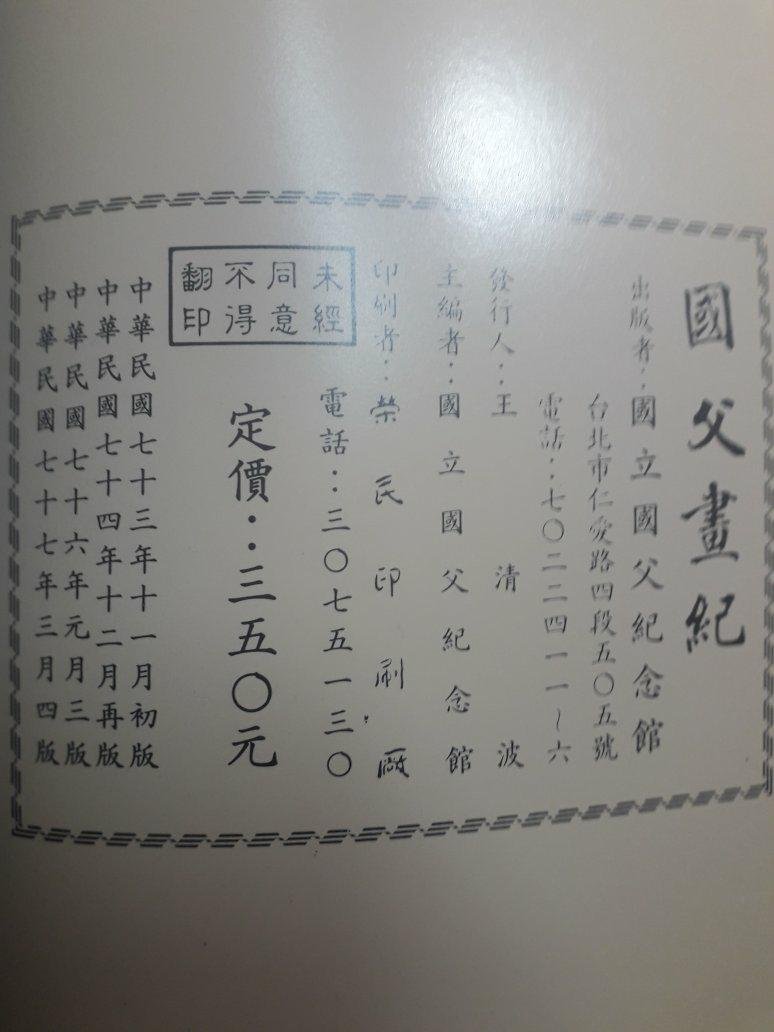 國父畫紀
出版者：國立國父紀念館
台北市仁愛路四段五〇五號
電話：七〇二二四一一～六
發行人：王清波
主編者：國立國父紀念館
印刷者：榮民印刷廠
電話：三〇七五一三〇
未經
同意
不得
翻印
定價：三五〇元
中華民國七十三年十一月初版
中華民國七十四年十二月再版
中華民國七十六年元月三版
中華民國七十七年三月四版